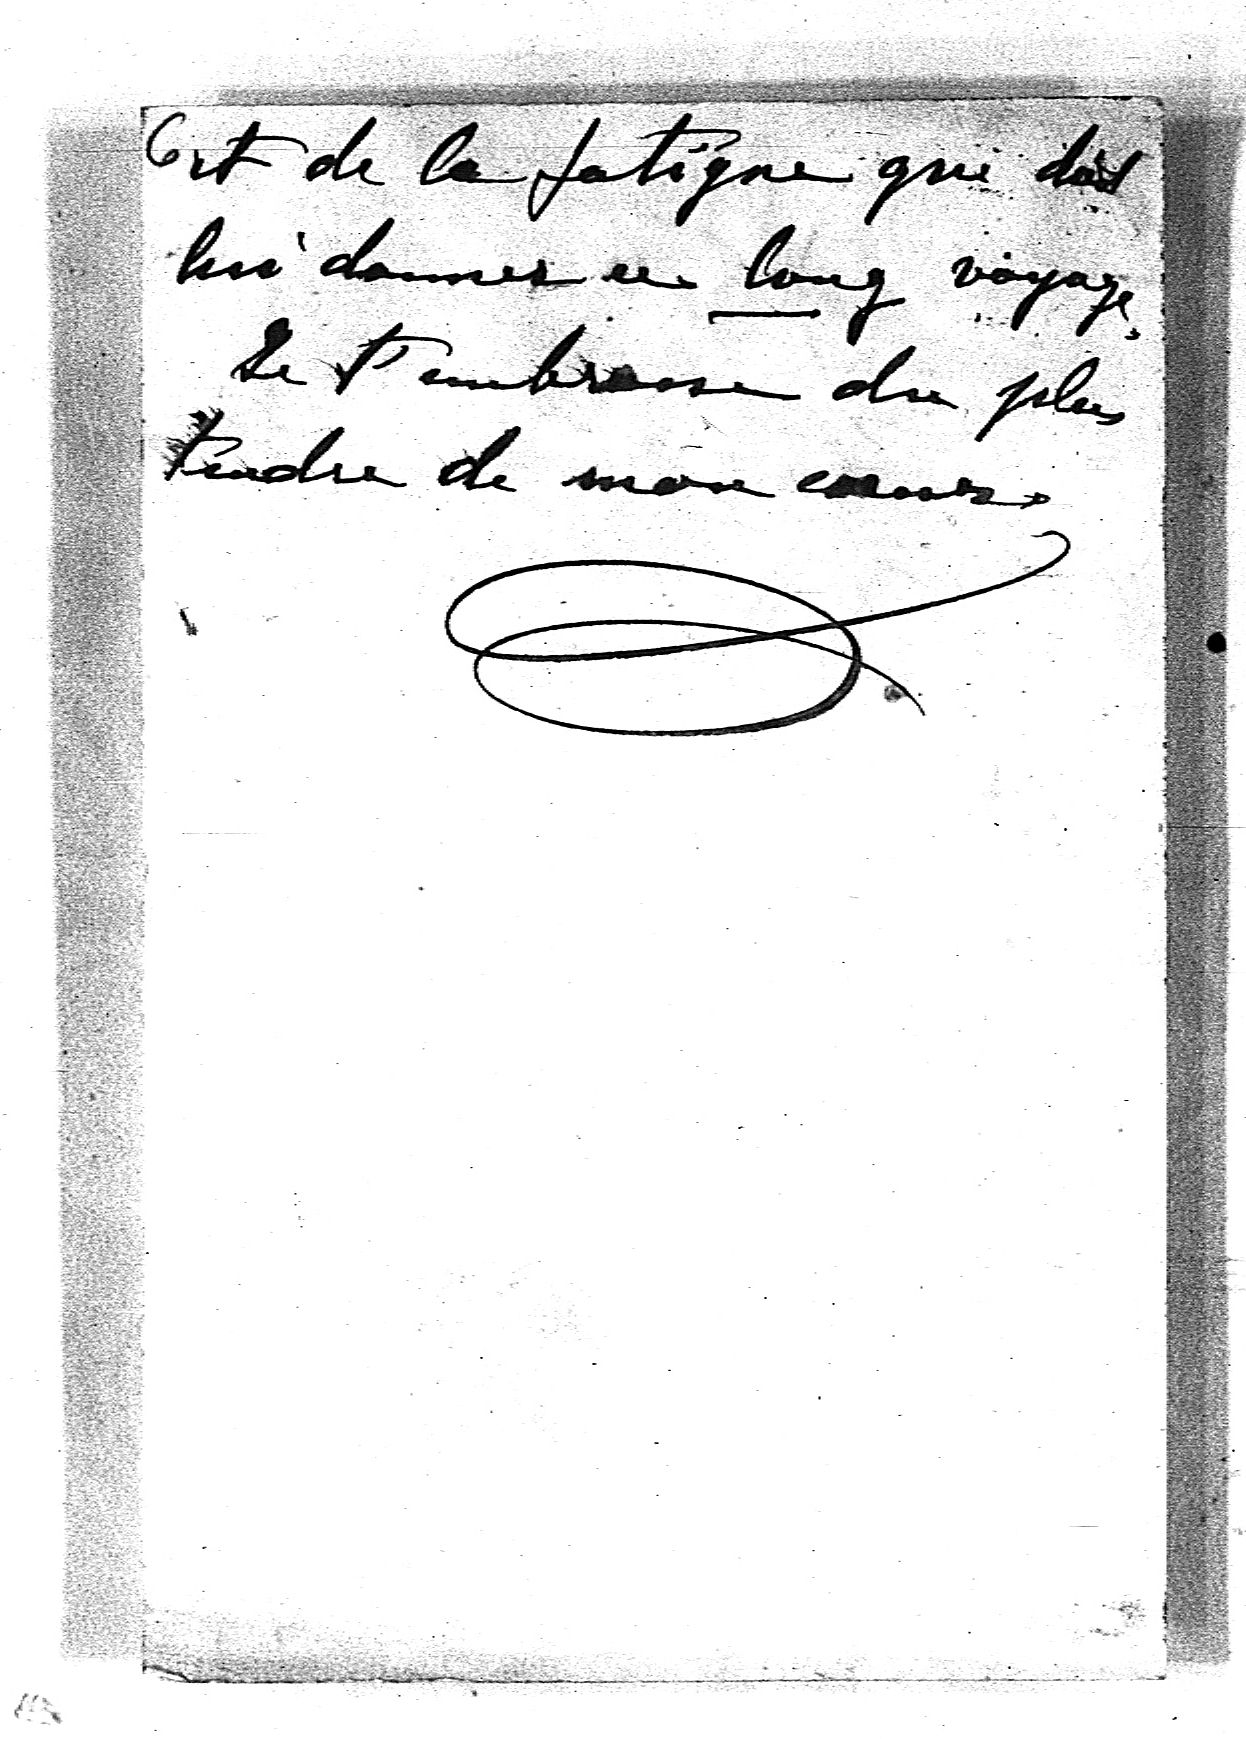 Et de la fatigue qui doit
lui donner ce long voyage.
Je t'embrasse du plus
tendre de mon cœur.